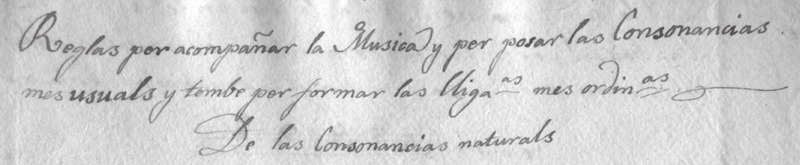 Reglas per acompañar la Musica, y per posar las Consonancias.
mes usuals y tembe per formar las lligaas mes ordinas
De las Consonancias naturals